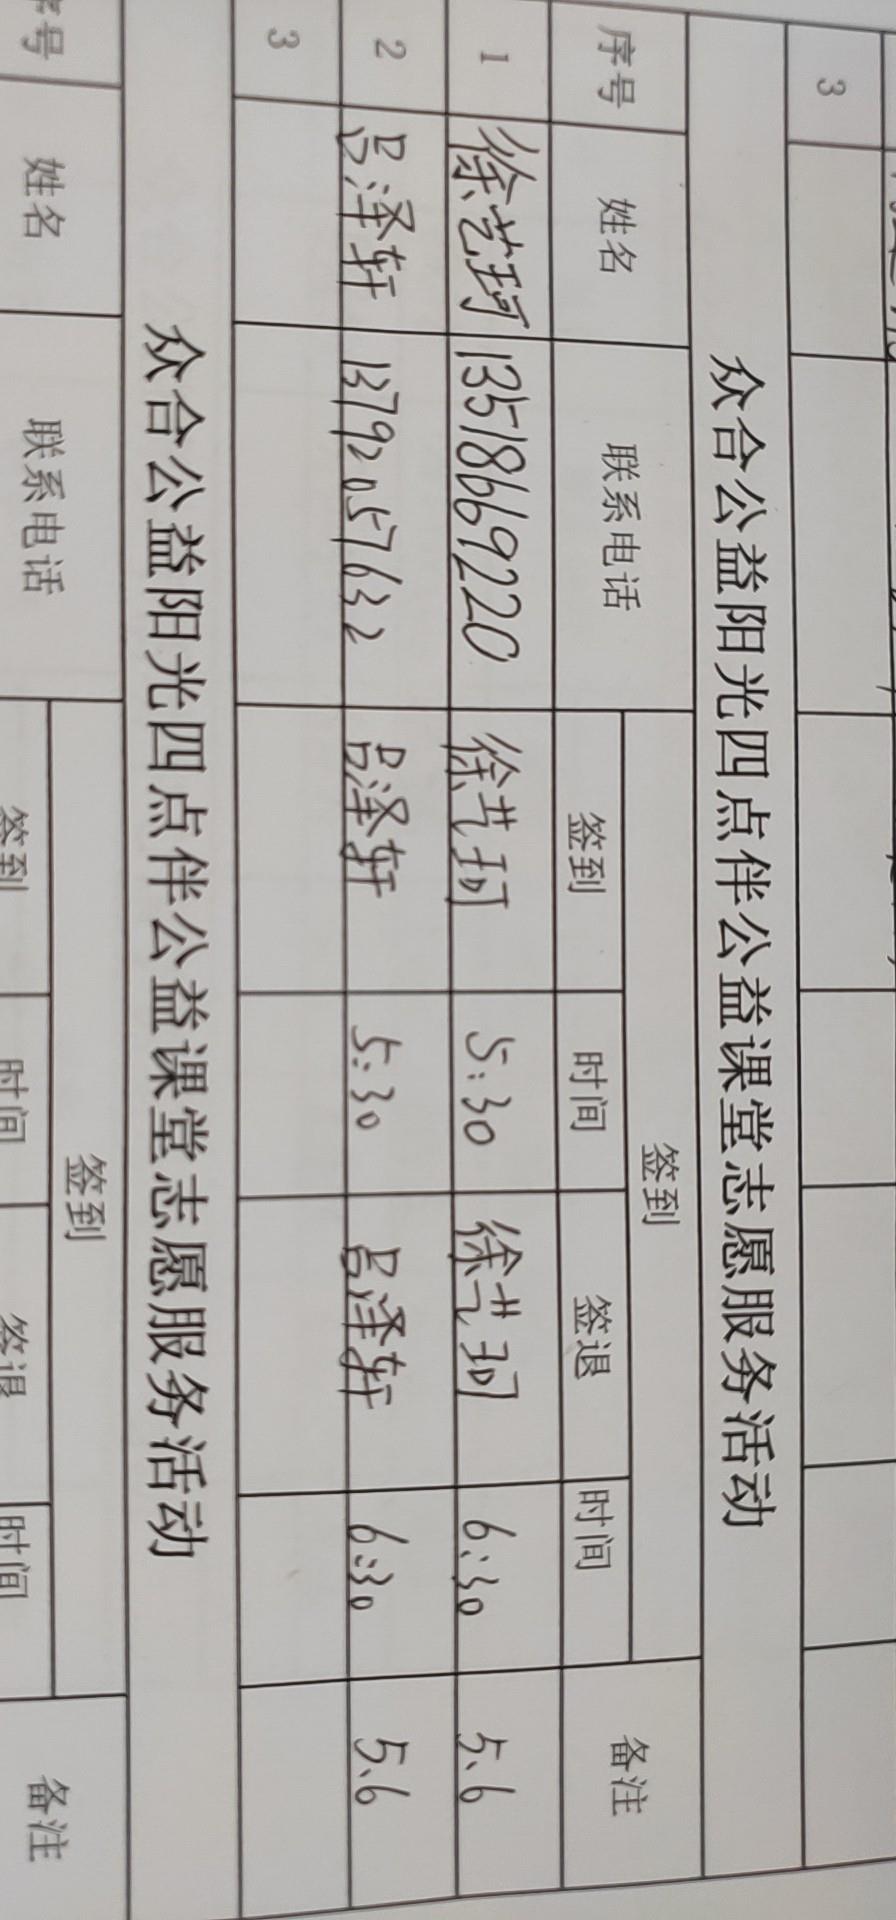 3
众合公益阳光四点伴公益课堂志愿服务活动
序号 姓名 联系电话 签到 备注
签到 时间 签退 时间
1 徐艺珂 13518669220 徐艺珂 5:30 徐艺珂 6:30 5.6
2 吕泽轩 13792057632 吕泽轩 5:30 吕泽轩 6:30 5.6
3
众合公益阳光四点伴公益课堂志愿服务活动
序号 姓名 联系电话 签到 备注
签到 时间 签退 时间